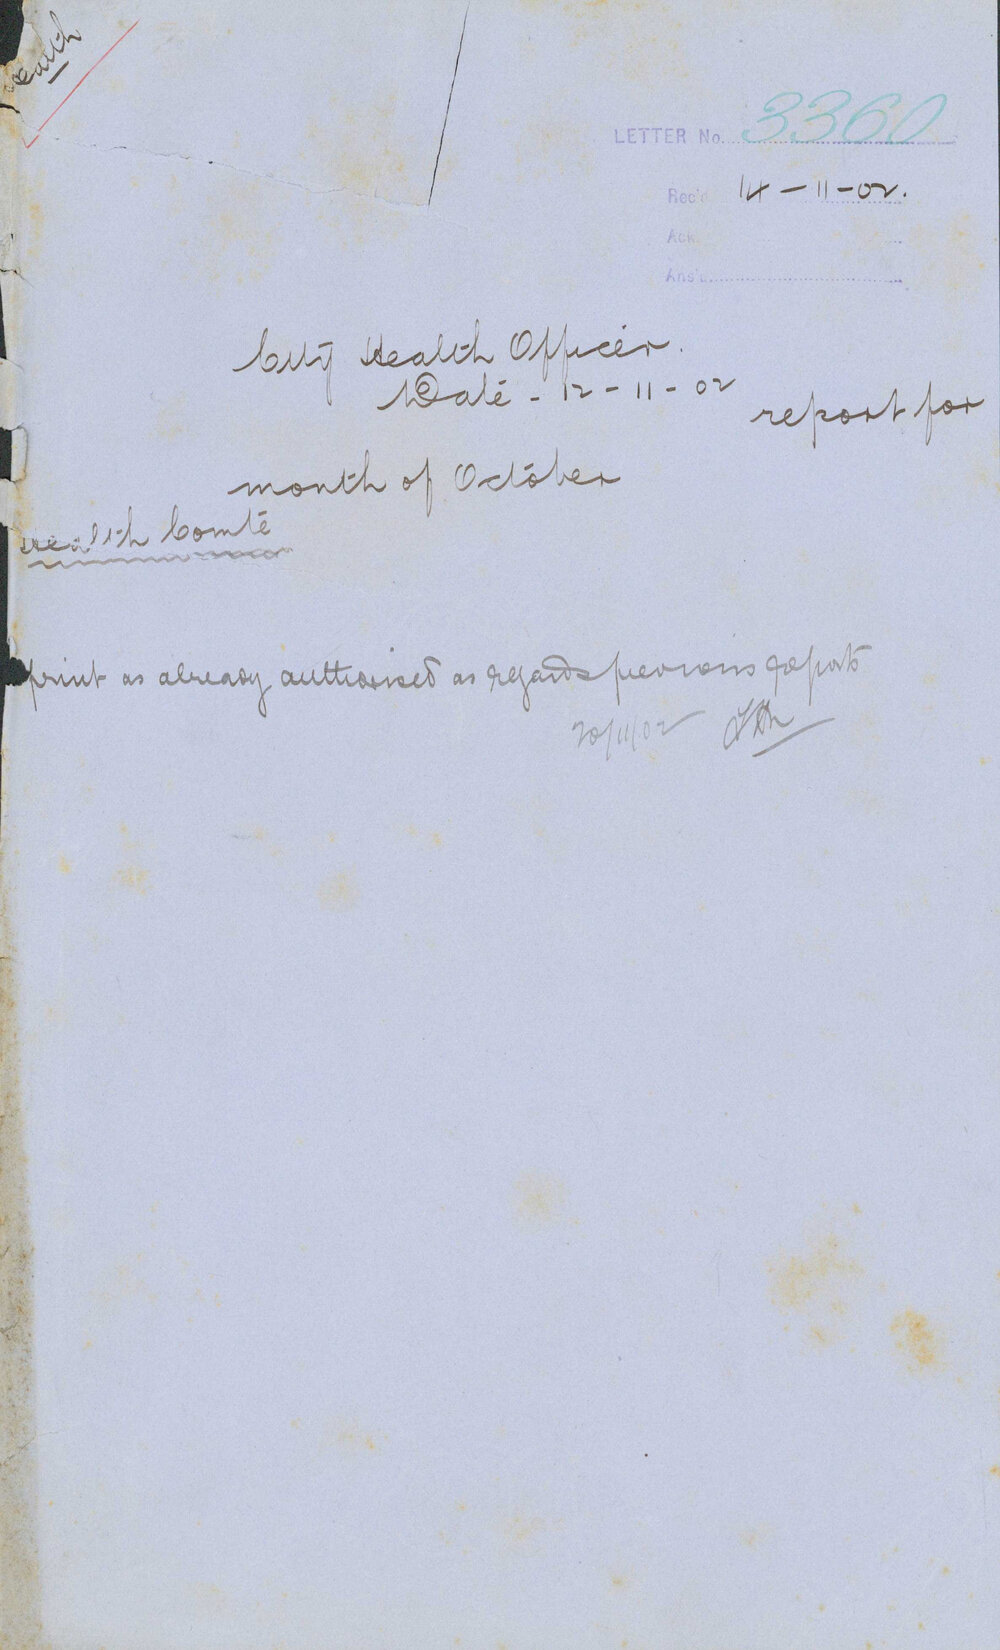 Health
LETTER No. 3360
Rec'd 14-11-02.
Ack
Ans'd
City Health Officer.
Date - 12-11-02
report for
month of October
Health Comte
print as already authorised as regards previous reports
20/11/02